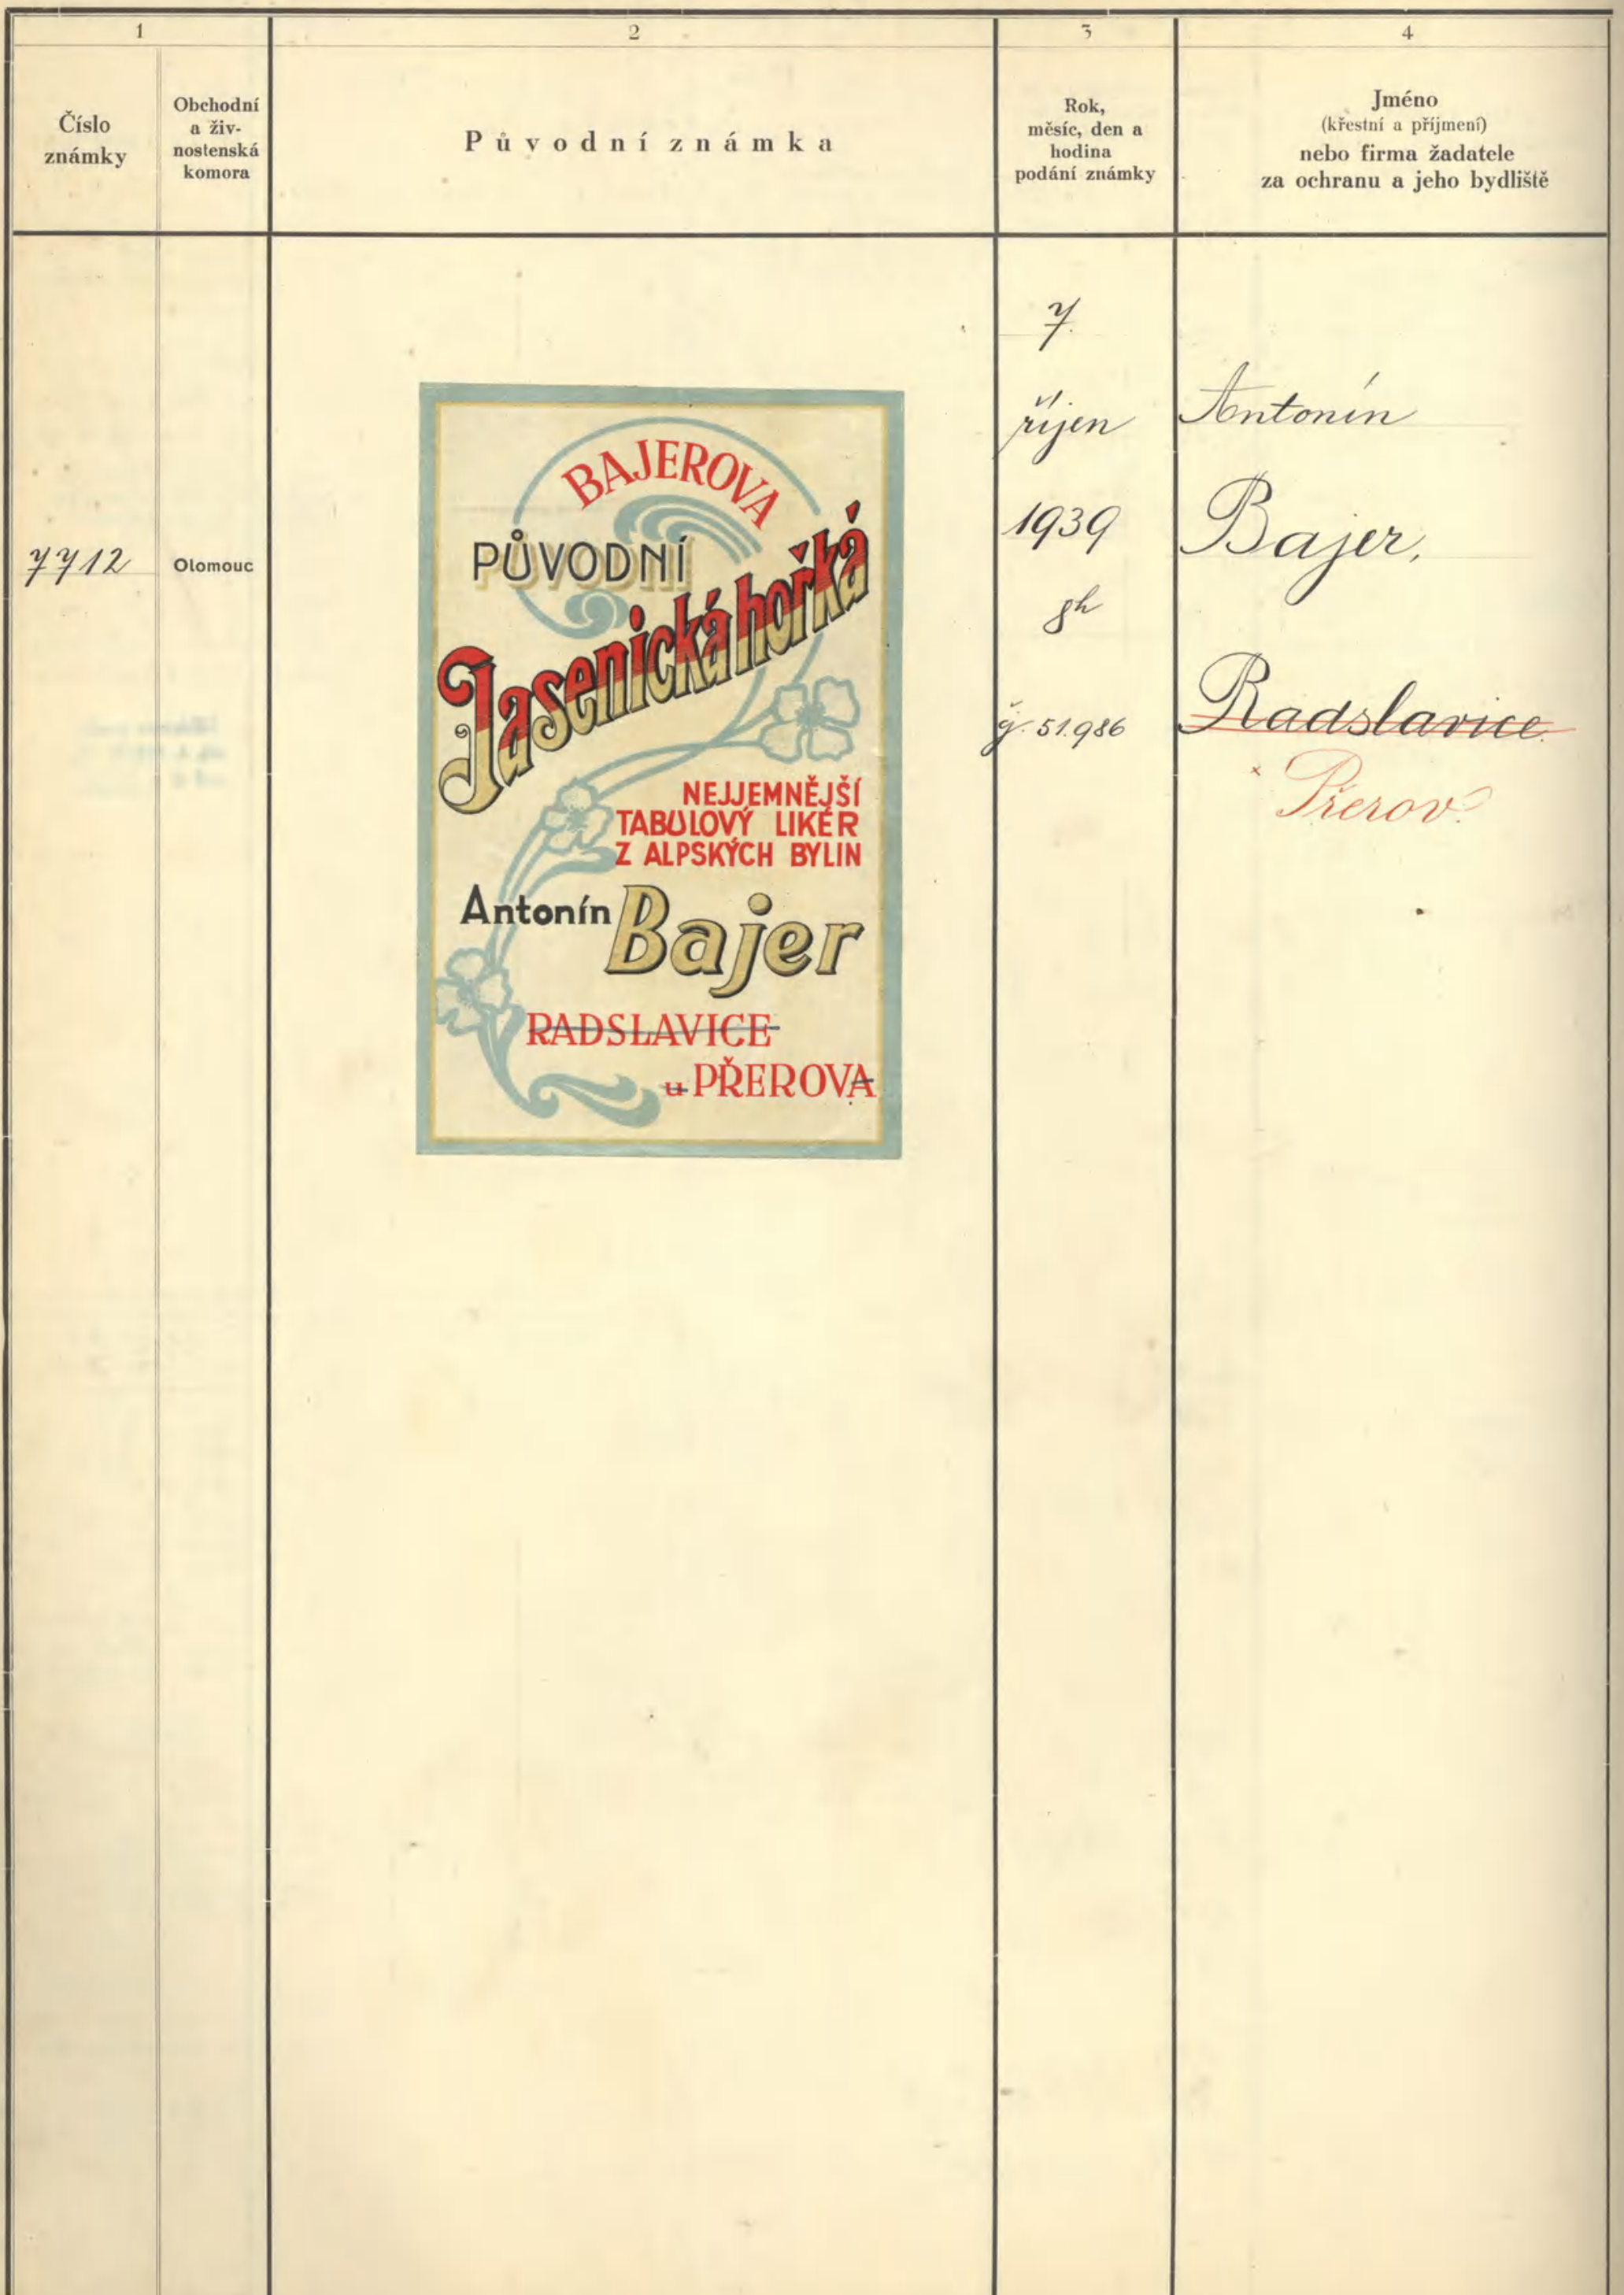 1
2
3
4
Číslo
známky
Obchodní
a živ-
nostenská
komora
Původní známka
Rok,
měsíc, den a
hodina
podání známky
Jméno
(křestní a příjmení)
nebo firma žadatele
za ochranu a jeho bydliště
7712
Olomouc
BAJEROVA
PŮVODNÍ
Jasenická hořká
NEJJEMNĚJŠÍ
TABULOVÝ LIKÉR
Z ALPSKÝCH BYLIN
Antonín Bajer
RADSLAVICE
u PŘEROVA
7.
říjen
1939
8h
51.986
Antonín
Bajer,
Radslavice
Přerov.